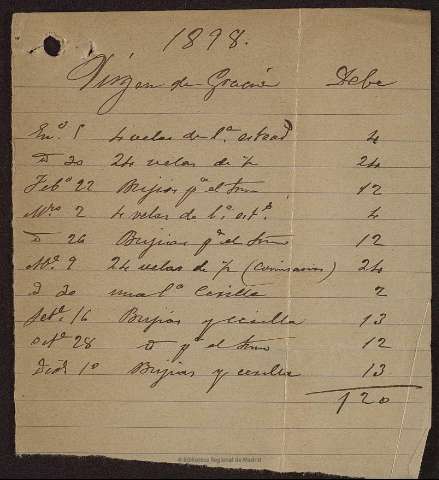 1898.
Virgen de Gracia Debe
En.º 1 4 velas de l.ª 4
D 20 24 velas de 24
Feb.º 22 Bujias p.ª el 12
Mzo 2 4 velas de l.ª 4
D 26 Bujias p.ª el 12
9 24 velas de (Comisarios) 24
D 20 una l.ª Cerilla 2
Set.e 16 Bujias y cerilla 13
Oct.e 28 D p.ª el 12
Dic 10 Bujias y cerilla 13
120
© Biblioteca Regional de Madrid